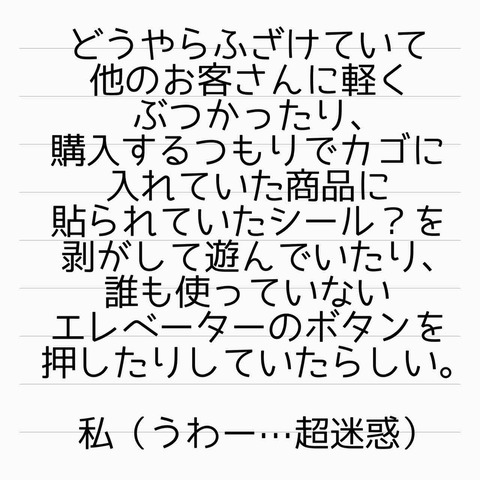 どうやらふざけていて
他のお客さんに軽く
ぶつかったり、
購入するつもりでカゴに
入れていた商品に
貼られていたシール？を
剥がして遊んでいたり、
誰も使っていない
エレベーターのボタンを
押したりしていたらしい。
私（うわー…超迷惑）